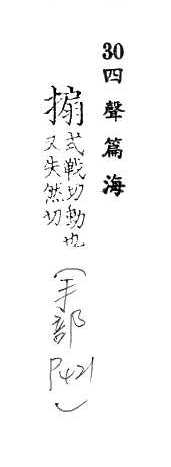 30四聲篇海
搧式戰切動也
又失然切
(手部
P421)